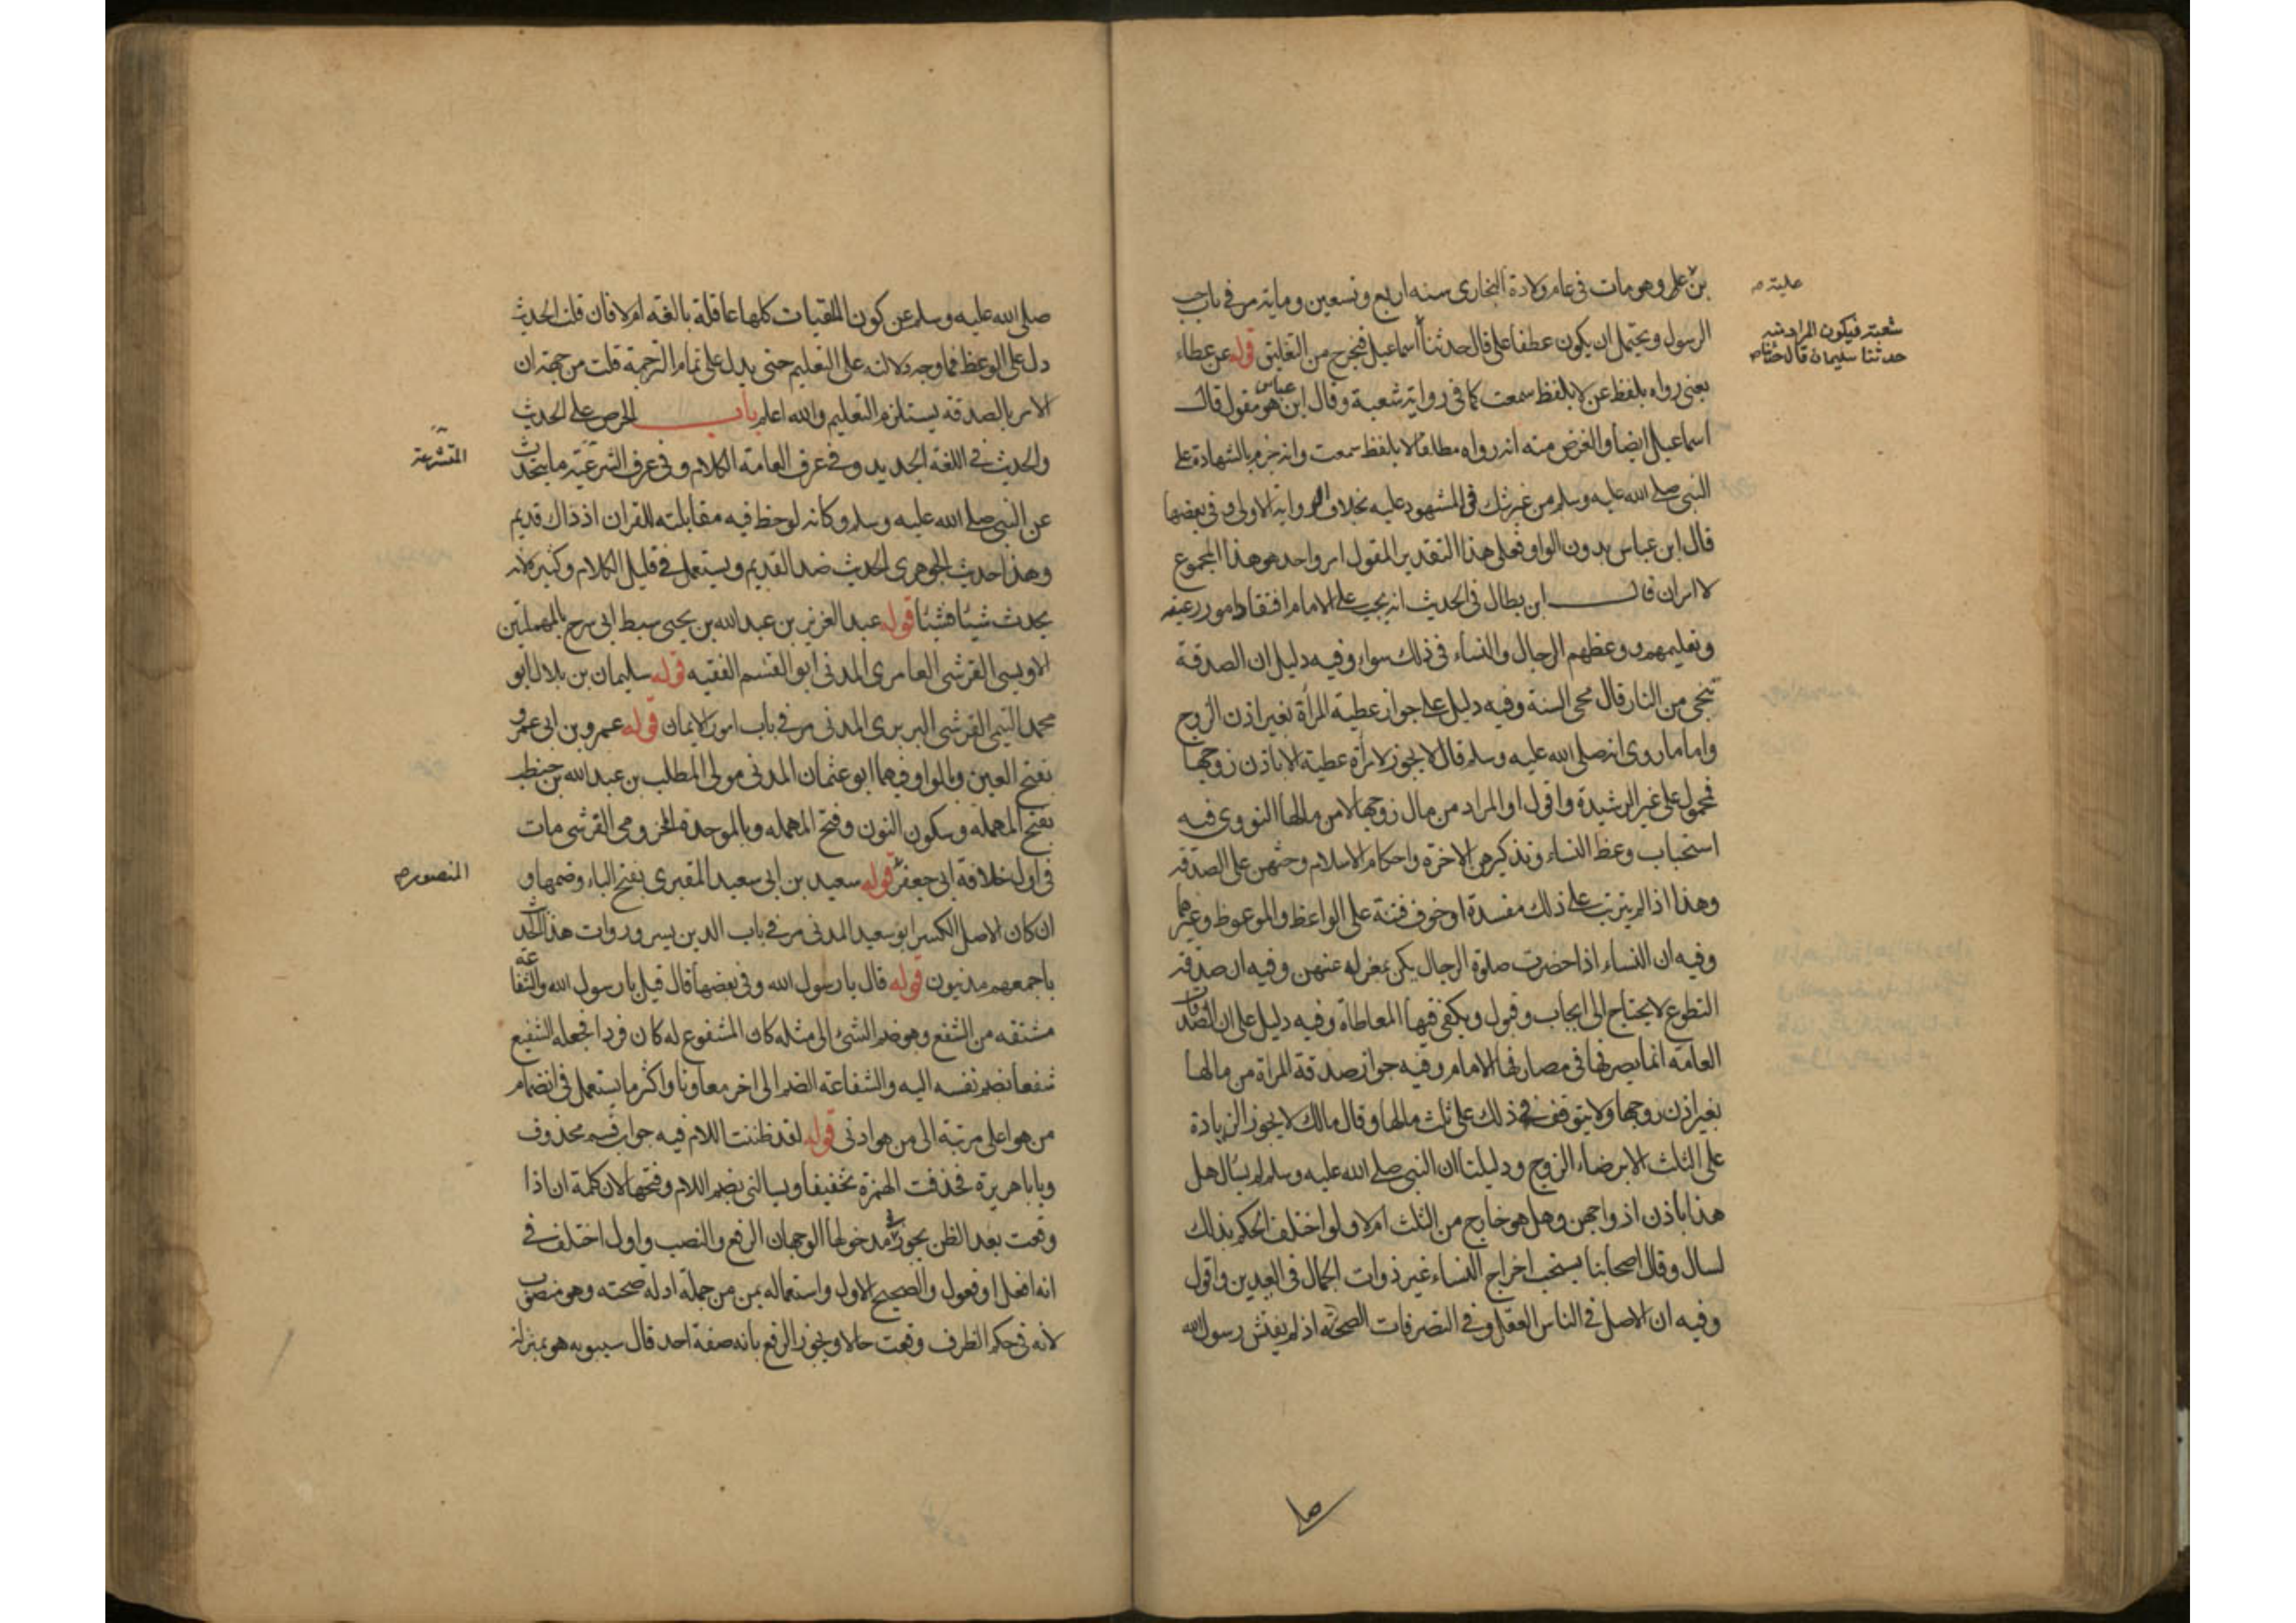 بن علية وهو مات في عام ولادة البخاري سنه اربع وتسعين ومايه مر في باب حب
الرسول ويحتمل ان يكون عطفا على قال حدثنا اسماعيل فيخرج من التعليق قوله عن عطاء
يعني رواه بلفظ عن لا بلفظ سمعت كما في رواية شعبة وقال ابن عباس هو مقول قال
اسماعيل ايضا والغرض منه انه رواه مطلقا لا بلفظ سمعت وانه جزم بالشهادة على
النبي صلى الله عليه وسلم من غير شك في المشهود عليه بخلاف الرواية الاولى وفي بعضها
قال ابن عباس بدون الواو فعلى هذا التقدير المقول امر واحد هو هذا المجموع
لا امران قال ابن بطال في الحديث انه يجب على الامام افتقاد امور رعيته
وتعليمهم ووعظهم الرجال والنساء في ذلك سواء وفيه دليل ان الصدقة
تنجي من النار قال محي السنة وفيه دليل على جواز عطية المرأة بغير اذن الزوج
واما ما روى انه صلى الله عليه وسلم قال لا يجوز لامرأة عطية الا باذن زوجها
فمحمول على غير الرشيدة واقول او المراد من مال زوجها لا من مالها النووي فيه
استحباب وعظ النساء وتذكيرهن الاخرة واحكام الاسلام وحثهن على الصدقه
وهذا اذا لم يترتب على ذلك مفسدة او خوف فتنة على الواعظ والموعوظ وغيرهما
وفيه ان النساء اذا حضرت صلوة الرجال يكن بمعزله عنهن وفيه ان صدقه
التطوع لا يحتاج الى ايجاب وقبول ويكفي فيها المعاطاة وفيه دليل على ان الصدقات
العامه انما يصرفها في مصارفها الامام وفيه جواز صدقة المراة من مالها
بغير اذن زوجها ولا يتوقف في ذلك على ثلث مالها وقال مالك لا يجوز الزيادة
على الثلث الا برضاء الزوج ودليلنا ان النبي صلى الله عليه وسلم لم يسال هل
هذا باذن ازواجهن وهل هو خارج من الثلث ام لا ولو اختلف الحكم بذلك
لسال وقال اصحابنا يستحب اخراج النساء غير ذوات الجمال في العيدين واقول
وفيه ان الاصل في الناس العقل وفي التصرفات الصحة اذ لم يفتش رسول الله
علية
شعبة فيكون المراد به
حدثنا سليمان قال حدثنا
صلى الله عليه وسلم عن كون الملقيات كلها عاقلة بالغه ام لا فان قلت الحديث
دل على الوعظ فما وجه دلالته على التعليم حتى يدل على تمام الترجمة قلت من جهة ان
الامر بالصدقه يستلزم التعليم والله اعلم باب الحرص على الحديث
والحديث في اللغه الجديد وفي عرف العامه الكلام وفي عرف الشرعية ما يتحدث
عن النبي صلى الله عليه وسلم وكانه لوحظ فيه مقابلته للقران اذ ذاك قديم
وهذا حديث الجوهري الحديث ضد القديم ويستعمل في قليل الكلام وكثيره لانه
يحدث شيئا فشيئا قوله عبد العزيز بن عبد الله بن يحيى سبط ابي سرح بالمهملتين
الاويسي القرشي العامري المدني ابو القسم الفقيه قوله سليمان بن بلال ابو
محمد التيمي القرشي البربري المدني مر في باب امور الايمان قوله عمرو بن ابي عمرو
بفتح العين وبالواو فيهما ابو عثمان المدني مولى المطلب بن عبد الله بن حنطب
بفتح المهمله وسكون النون وفتح المهمله وبالموحدة المخزومي القرشي مات
في اول خلافة ابي جعفر قوله سعيد بن ابي سعيد المقبري بفتح الباء وضمها و
ان كان الاصل الكسر ابو سعيد المدني مر في باب الدين يسر وروات هذا الحديث
باجمعهم مدنيون قوله قال يا رسول الله وفي بعضها قال قيل يا رسول الله والشفاعة
مشتقه من الشفع وهو ضم الشئ الى مثله كان المشفوع له كان فردا فجعله الشفيع
شفعا بضم نفسه اليه والشفاعة الضم الى اخر معاونا واكثر ما يستعمل في انضمام
من هو اعلى مرتبة الى من هو ادنى قوله لقد ظننت اللام فيه جواب قسم محذوف
ويا با هريرة فحذفت الهمزة تخفيفا ويسالني بضم اللام وفتحها لان كلمة ان اذا
وقعت بعد الظن يجوز في مدخولها الوجهان الرفع والنصب واول اختلف في
انه افعل او فوعل والصحيح الاول واستعماله بمن من جملة ادلة صحته وهو منصوب
لانه في حكم الظرف وقعت حالا ويجوز الرفع بانه صفة احد قال سيبويه هو بمنزلة
المتشرعة
المنصور